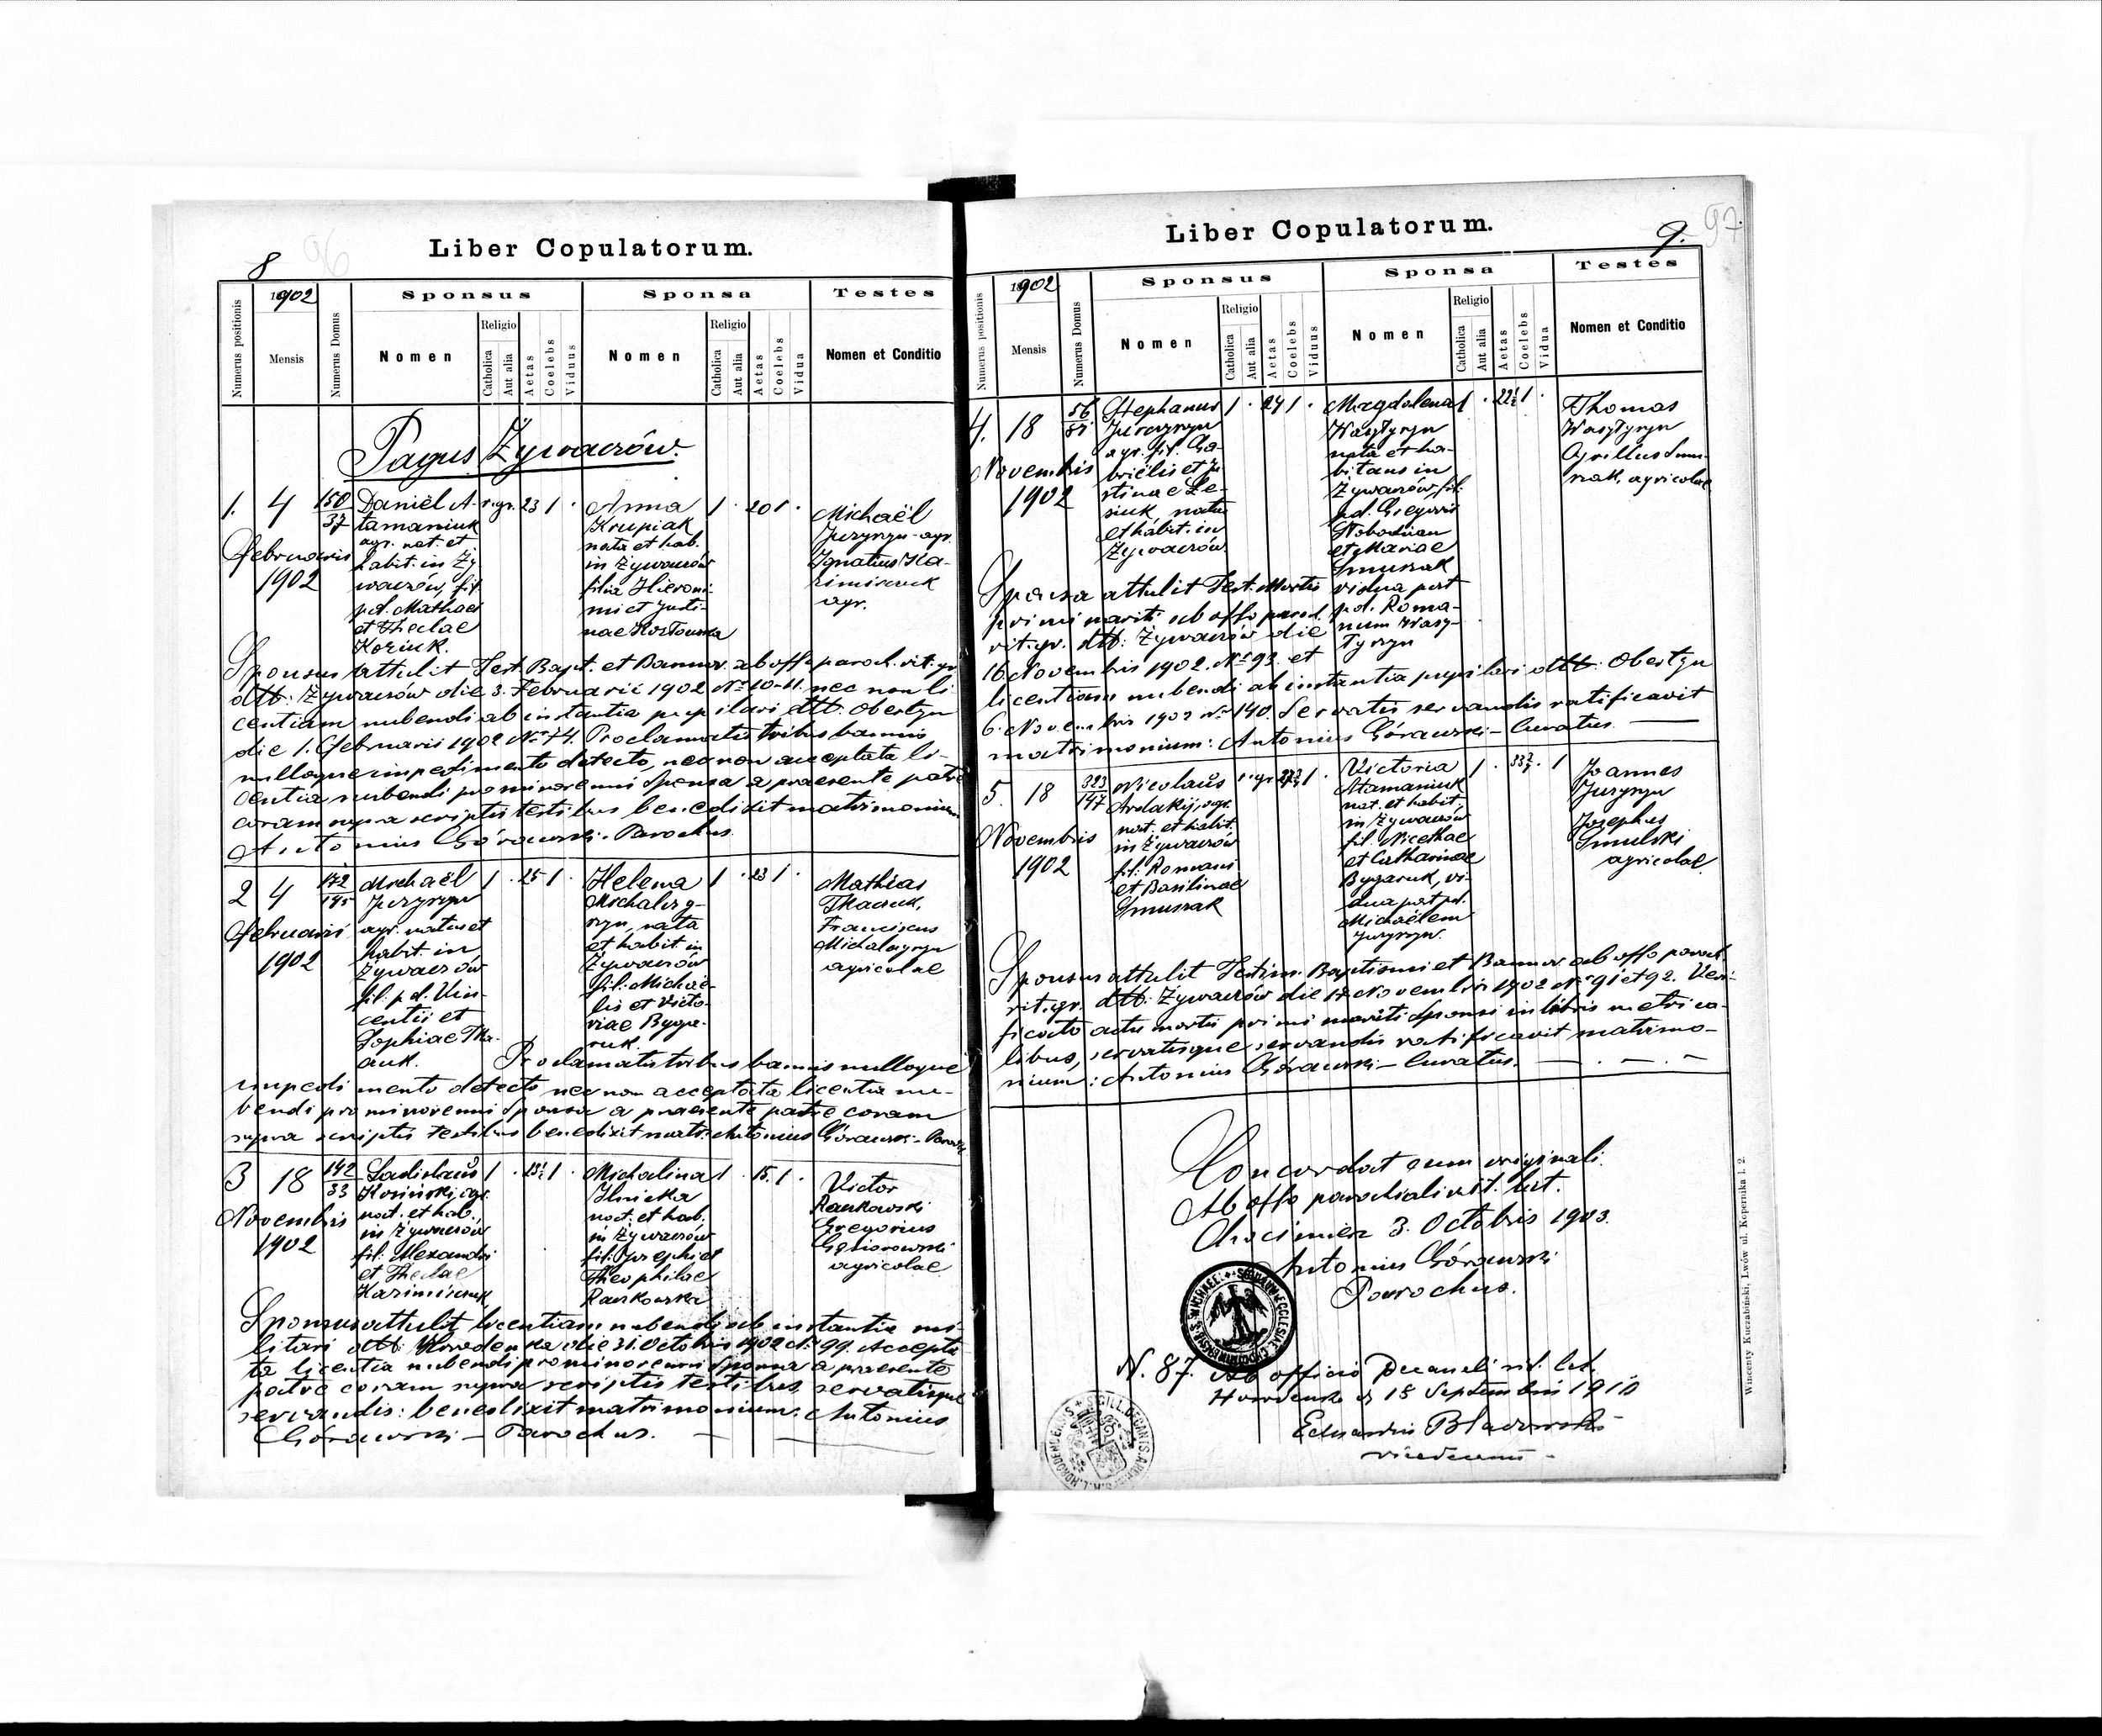 8 96
Liber Copulatorum.
Numerus positionis
1902
Mensis
Numerus Domus
Sponsus
Nomen
Religio
Catholica
Aut alia
Aetas
Coelebs
Viduus
Sponsa
Nomen
Religio
Catholica
Aut alia
Aetas
Coelebs
Vidua
Testes
Nomen et Conditio
Pagus Żywaczów.
1. 4
Februaris
1902
150
37
Daniël A-
tamaniuk
agr. nat. et
habit. in Ży-
waczów, fil.
pd. Mathaei
et Theclae
Koziuk.
r. gr. 23 1 .
Anna
Krupiak
nata et hab.
in Żywaczów
filia Hieroni-
mi et Justi-
nae
1 . 20 1 .
Michaël
Juzyszyn - agr.
Ignatius Ka-
zimisczuk
agr.
Sponsus attulit Test. Bapt. et Bannor. ab offo paroch. rit. gr.
dtto: Żywaczów die 3. Februarii 1902 No 10-11. nec non li-
centiam nubendi ab instantia pupilari dtto. Obertyn
die 1. Februarii 1902 No 74. Proclamatis tribus bannis
nulloque impedimento detecto, nec non acceptata li-
centia nubendi pro minorenni Sponsa a praesente patre
coram supra scriptis testibus benedixit matrimonium
Antonius Górawski - Parochus.
2 4
Februarii
1902
172
Michaël
Juzyszyn
agr. natus et
habit. in
Żywaczów
fil. pd. Vin-
centii et
Sophiae Tka-
czuk.
1 . 25 1 .
Helena
nata
et habit in
Żywaczów
fil. Michaë-
lis et Victo-
riae Byga-
ruk.
1 . 23 1 .
Mathias
Tkaczuk,
Franciscus
agricolae
Proclamatis tribus bannis nulloque
impedimento detecto nec non acceptata licentia nu-
bendi pro minorenni Sponsa a praesente patre coram
supra scriptis testibus benedixit matr. Antonius Górawski -
3 18
Novembris
1902
142
33
Ladislaus
Kosiński, agr.
nat. et hab.
in Żywaczów
fil. Alexandri
et Theclae
1 . 1 .
Michalina
Ilnicka
nat. et hab.
in Żywaczów
fil. Josephi et
Theophilae
Raszkowska
1 . 15. 1 .
Victor
Raszkowski
Gregorius
Gąsiorowski
agricolae
Sponsus attulit licentiam nubendi ab instantia mi-
litari dtto: Horodenka die 31. Octobris 1902 No 99. Accepta-
ta licentia nubendi pro minorenni Sponsa a praesente
patre coram supra scriptis testibus, servatisque
servandis: benedixit matrimonium: Antonius
Górawski - Parochus.
9. 97
Liber Copulatorum.
Numerus positionis
1902
Mensis
Numerus Domus
Sponsus
Nomen
Religio
Catholica
Aut alia
Aetas
Coelebs
Viduus
Sponsa
Nomen
Religio
Catholica
Aut alia
Aetas
Coelebs
Vidua
Testes
Nomen et Conditio
4. 18
Novembris
1902
56
Stephanus
Juzyszyn
agr. fil. Ga-
briëlis et Ju-
stinae Le-
siuk, natus
et habit. in
Żywaczów
1 . 24 1 .
Magdalena
Wasztyszyn
nata et ha-
bitans in
Żywaczów, fil.
pd. Gregorii
Słobodzian
et Mariae
Smuszak
vidua post
pd. Roma-
num Wasz-
tyszyn
1 . 1 .
Thomas
Wasztyszyn
agricolae
Sponsa attulit Test. Mortis
primi mariti ab offo paroch.
rit. gr. dtto: Żywaczów die
16. Novembris 1902. No 93. et
licentiam nubendi ab instantia pupilari dtto. Obertyn
6. Novembris 1902 No 140. Servatis servandis ratificavit
matrimonium: Antonius Górawski - Curatus.
5. 18
Novembris
1902
323
147
Nicolaus
Ardakij, agr.
nat. et habit.
in Żywaczów
fil. Romani
et Basilinae
Smuszak
r. gr 1 .
Victoria
Atamaniuk
nat. et habit,
in Żywaczów
fil. Nicethae
et Catharinae
Bygaruk, vi-
dua post pd.
Michaëlem
Juzyszyn.
1 . . 1
Joannes
Juzyszyn
Josephus
Smulski
agricolae
Sponsus attulit Testim. Baptismi et Bannor ab offo paroch.
rit. gr. dtto. Żywaczów die Novembris 1902 No 91 et 92. Veri-
ficato actu mortis primi mariti Sponsi in libris metrica-
libus, servatisque servandis ratificavit matrimo-
nium: Antonius Górawski - Curatus.
Concordat cum originali.
Ab offo parochiali rit. lat.
Chocimierz 3. Octobris 1903.
Antonius Górawski
Parochus.
N. 87. Ab officio Decanali rit. lat.
18 Septembris 1910
vicedecanus
Wincenty Kuczabiński, Lwów ul. Kopernika l. 2.